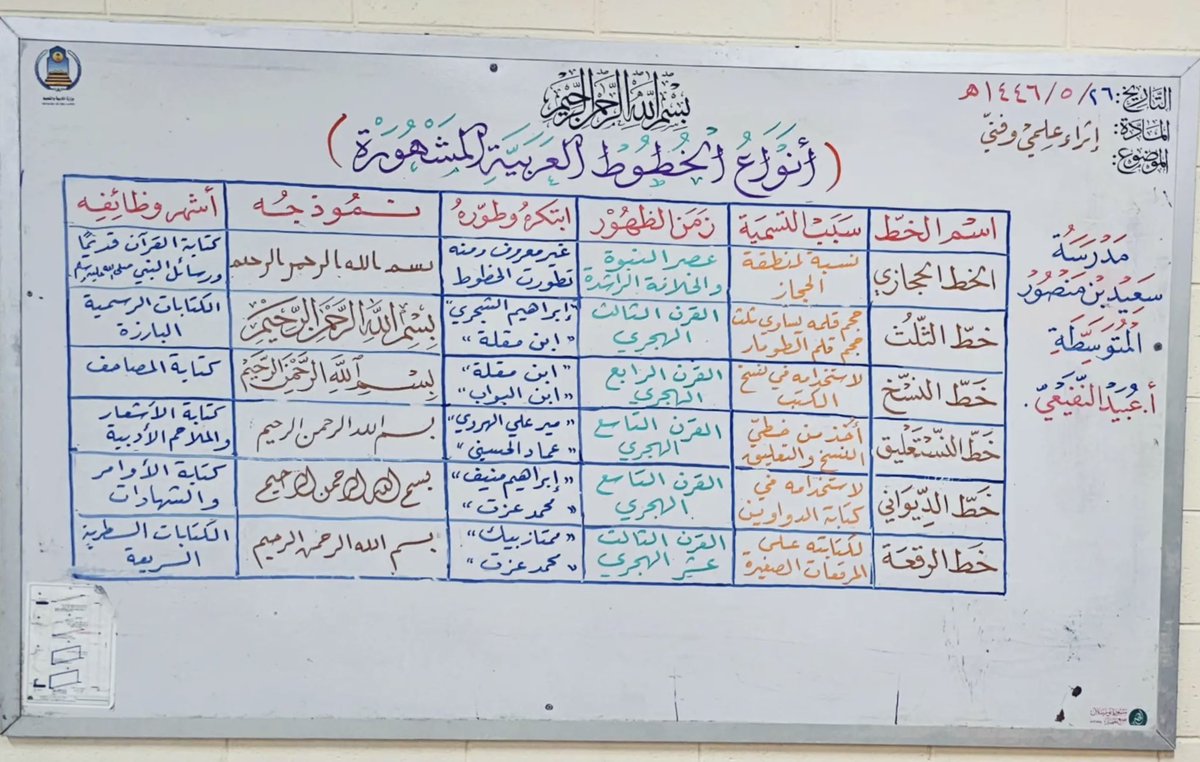 بِسْمِ اللهِ الرَّحْمٰنِ الرَّحِيْمِ
التاريخ: ٢٦/ ٥ / ١٤٤٦هـ
المادة: إثراء علمي وفني
الموضوع:
(أنْوَاعُ الخُطُوطِ العَرَبِيَّةِ المَشْهُورَة)
مَدْرَسَةُ
سَعِيدِ بْنِ مَنْصُوْر
المُتَوَسِّطَةِ
أ. عُبيد النُّفَيعيّ.
اسم الخطّ | سَبَبُ التسمية | زَمَنُ الظهُوْر | ابتكرهُ وطوّرهُ | نموذجُه | أشهر وظائِفِه
الخط الحجازي | نسبة لمنطقة الحجاز | عصر النبوة والخلافة الراشدة | غير معروف ومنه تطورت الخطوط | بسم الله الرحمن الرحيم | كتابة القرآن قديمًا ورسائل النبي صلى الله عليه وسلم
خطّ الثّلُث | حجم قلمه يساوي ثلث حجم قلم الطومار | القرن الثالث الهجري | "إبراهيم الشجري" "ابن مقلة" | بِسْمِ اللهِ الرَّحْمٰنِ الرَّحِيْمِ | الكتابات الرسمية البارزة
خطّ النسْخ | لاستخدامه في نسخ الكتب | القرن الرابع الهجري | "ابن مقلة" "ابن البواب" | بِسْمِ اللهِ الرَّحْمٰنِ الرَّحِيْمِ | كتابة المصاحف
خطّ النّستعليق | أُخذ من خطيّ النسخ والتعليق | القرن التاسع الهجري | "مير علي الهروي" "عماد الحسيني" | بسم الله الرحمن الرحيم | كتابة الأشعار والملاحم الأدبية
خطّ الدِّيوَاني | لاستخدامه في كتابة الدواوين | القرن التاسع الهجري | "إبراهيم منيف" "محمد عزت" | بسم الله الرحمن الرحيم | كتابة الأوامر والشهادات
خط الرقعَة | لكتابته على المرقعات الصغيرة | القرن الثالث عشر الهجري | "ممتاز بيك" "محمد عزت" | بسم الله الرحمن الرحيم | الكتابات السطرية السريعة